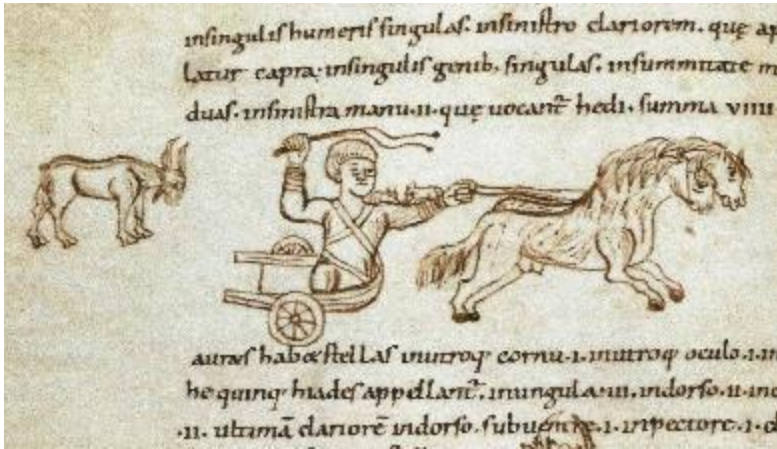 insingulis humeris singulas. insinistro clariorem. quę ap
latur capra; insingulis genib. singulas. insummitate m
duas. insinistra manu.ii. quę uocant hedi. summa viiii
auraes habet stellas inutroq cornu.i. inutroq oculo.i. in
he quinq hiades appellant. inungula.iii. indorso.ii. inc
.ii. ultimã clariorẽ indorso. subuentre.i. inpectore.i. c